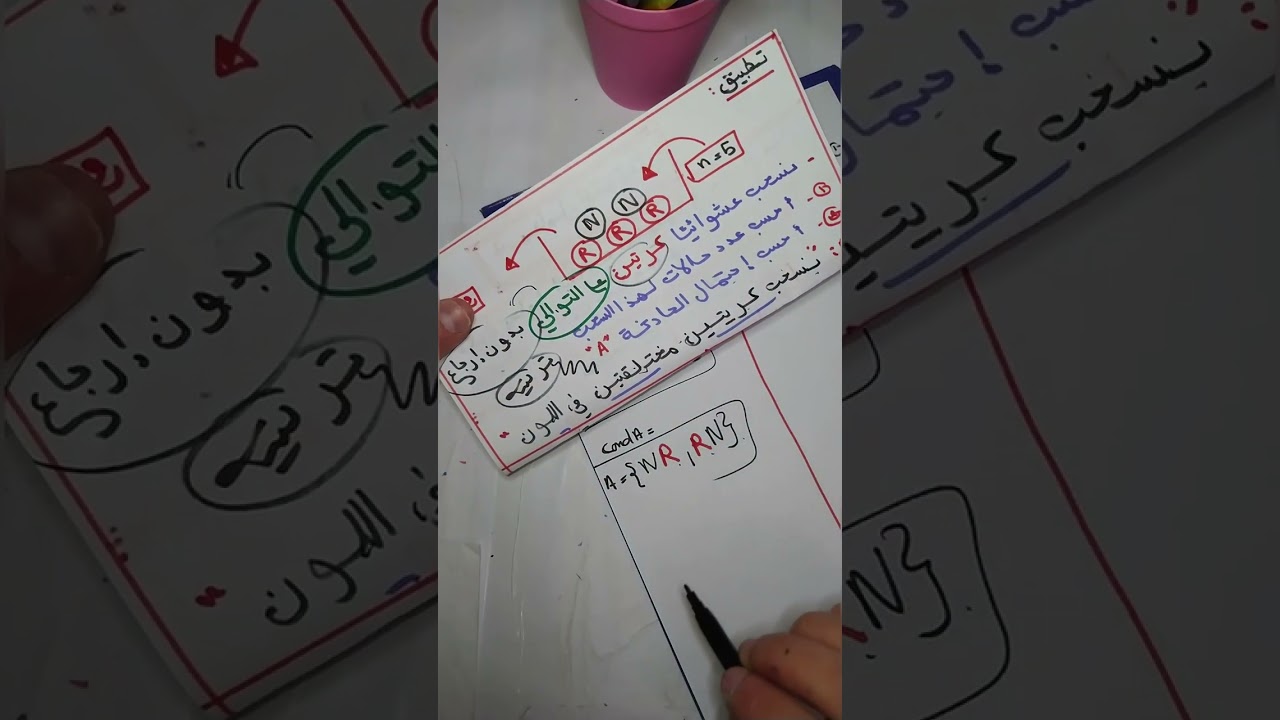 تطبيق :
n = 5
N N
R R R
- نسحب عشوائيا كرتين على التوالي بدون إرجاع
- أحسب عدد حالات لهذا السحب
- أحسب إحتمال الحادثة "A"
ترتيب
: نسحب كريتين مختلفتين في اللون "
Card A =
A = {NR , RN}